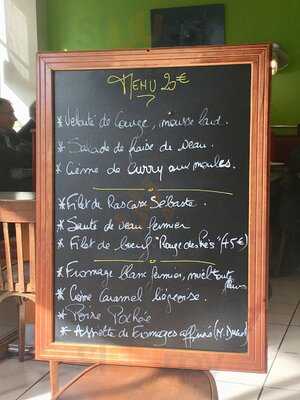 MENU 20€
* Velouté de Courge, mousse lard.
* Salade de fraise de veau.
* Crème de Curry aux moules.
* Filet de Rascasse Sébaste.
* Sauté de veau fermier
* Filet de boeuf "Rouge des Prés" (+5€)
* Fromage blanc fermier, miel toute fleurs
* Crème Caramel liégeoise.
* Poire Pochée
* Assiette de Fromages affinés (M.